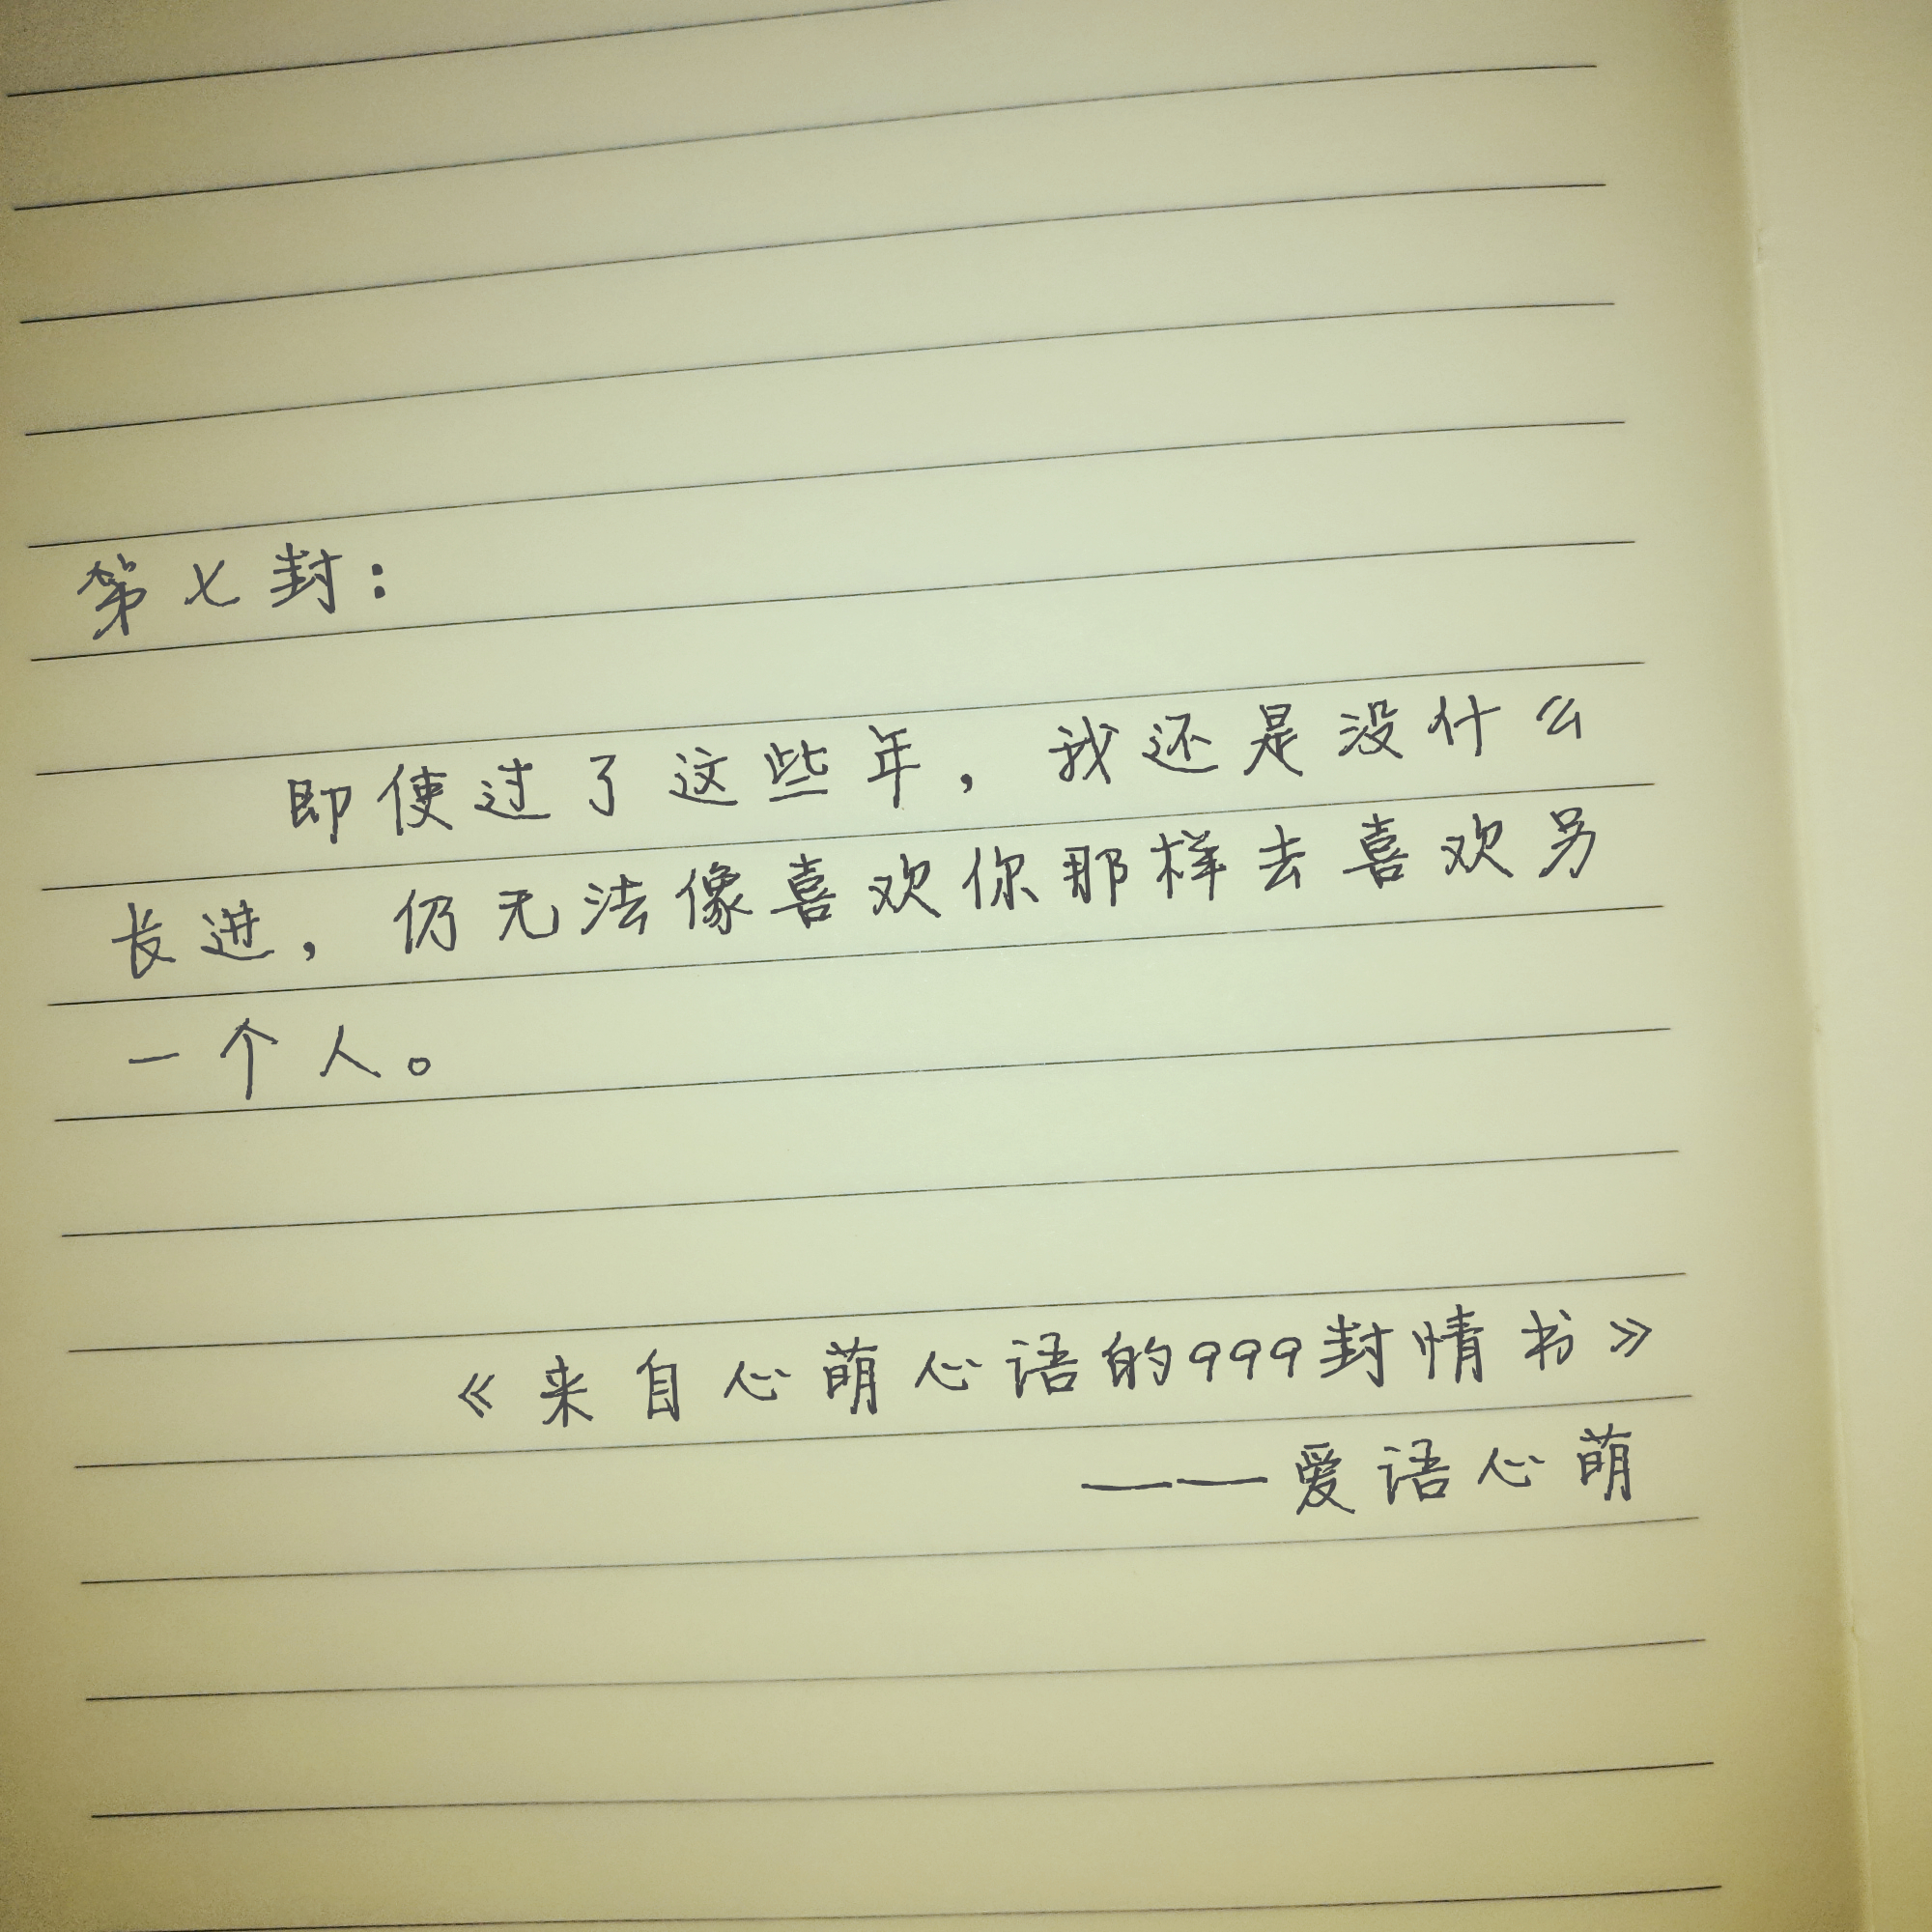 第七封：
即使过了这些年，我还是没什么
长进，仍无法像喜欢你那样去喜欢另
一个人。
《来自心萌心语的999封情书》
——爱语心萌